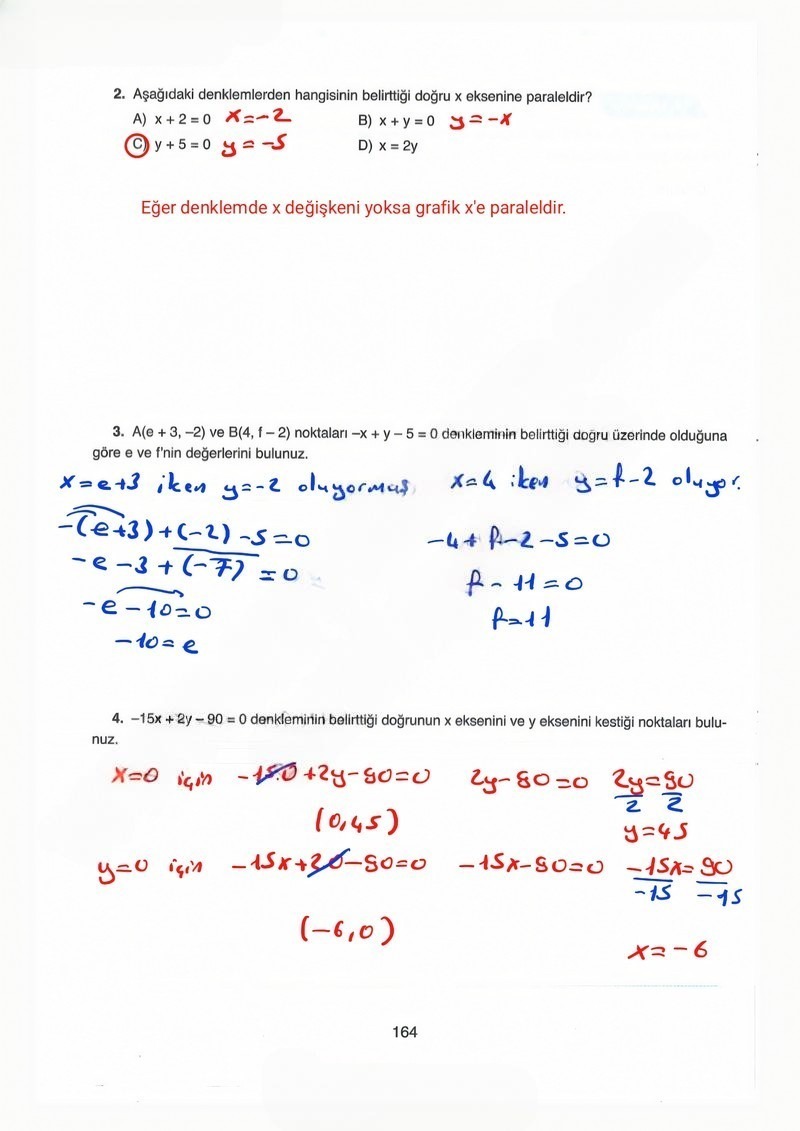 2. Aşağıdaki denklemlerden hangisinin belirttiği doğru x eksenine paraleldir?
A) x + 2 = 0 x=-2 B) x + y = 0 y=-x
C) y + 5 = 0 y=-5 D) x = 2y
Eğer denklemde x değişkeni yoksa grafik x'e paraleldir.
3. A(e + 3, –2) ve B(4, f – 2) noktaları –x + y – 5 = 0 denkleminin belirttiği doğru üzerinde olduğuna
göre e ve f'nin değerlerini bulunuz.
x=e+3 iken y=-2 oluyormuş x=4 iken y=f-2 oluyor.
-(e+3)+(-2)-5=0 -4+f-2-5=0
-e-3+(-7)=0 f-11=0
-e-10=0 f=11
-10=e
4. –15x + 2y – 90 = 0 denkleminin belirttiği doğrunun x eksenini ve y eksenini kestiği noktaları bulu-
nuz.
x=0 için -15.0+2y-90=0 2y-90=0 2y=90
2 2
(0,45) y=45
y=0 için -15x+2.0-90=0 -15x-90=0 -15x=90
-15 -15
(-6,0)
x=-6
164